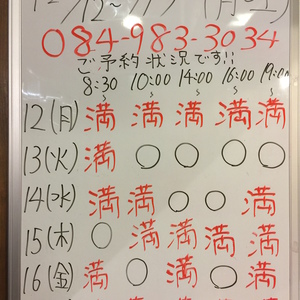 084-983-3034
ご予約状況です!!
8:30 10:00 14:00 16:00 19:00
12(月) 満 満 満 満 満
13(火) 満 ○ ○ ○ ○
14(水) 満 満 ○ ○ 満
15(木) ○ 満 満 満 満
16(金) 満 ○ 満 ○ 満